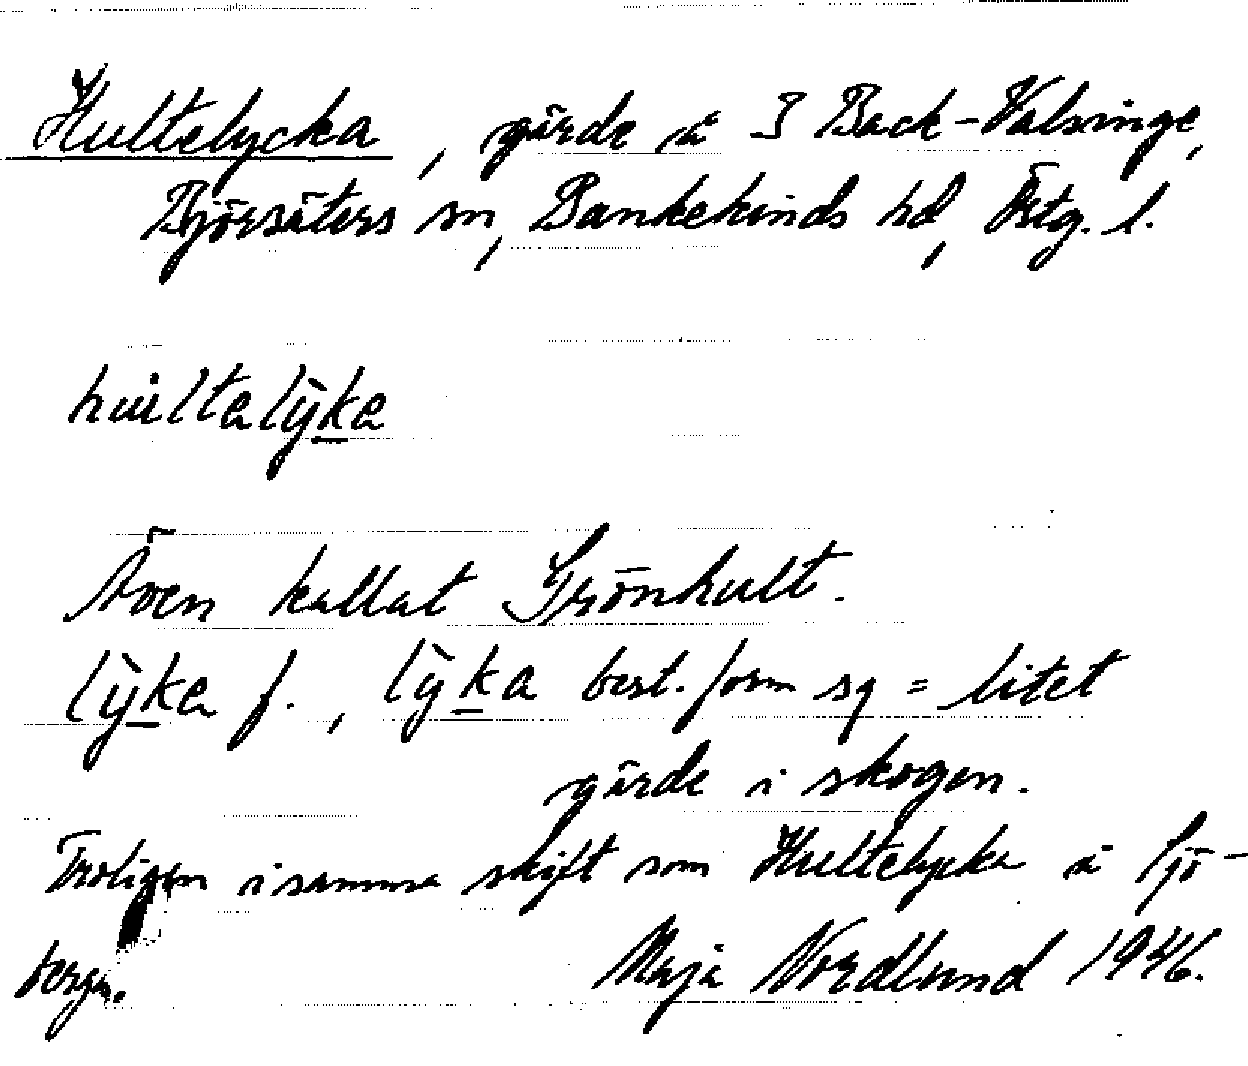 Hultelycka, gärde å I Back-Valsinge,
Björsäters sn, Bankekinds hd, Östg. l.
hu̇ltalỳka
Även kallat Grönhult.
lỳka f., lỳka best. form sg = litet
gärde i skogen.
Troligen i samma skift som Hultelycka å Sjö-
berga.
Maja Nordlund 1946.